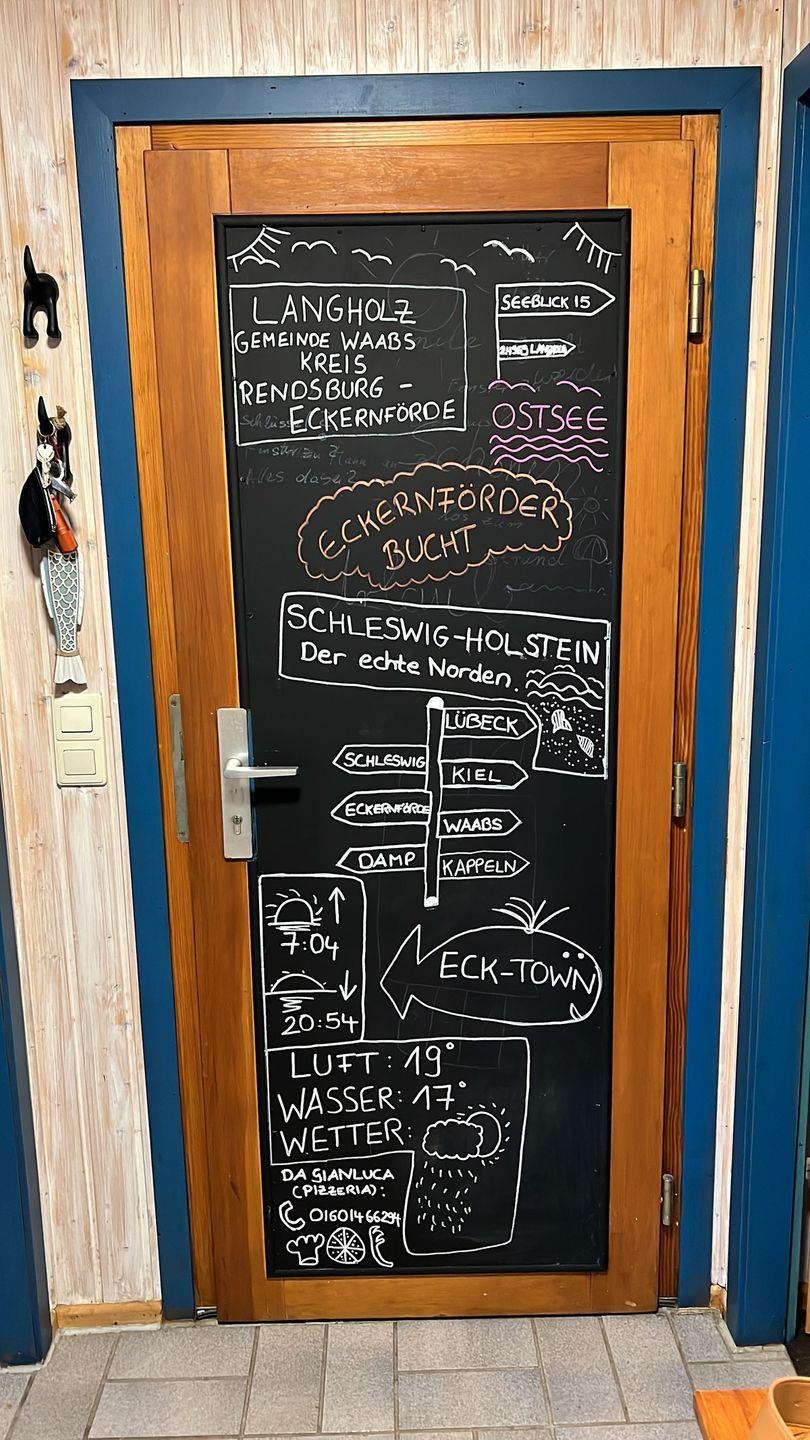 LANGHOLZ
GEMEINDE WAABS
KREIS
RENDSBURG -
ECKERNFÖRDE
SEEBLICK 15
24369 LANGHOLZ
OSTSEE
Alles dabei?
ECKERNFÖRDER
BUCHT
SCHLESWIG-HOLSTEIN
Der echte Norden.
LÜBECK
SCHLESWIG
KIEL
ECKERNFÖRDE
WAABS
DAMP
KAPPELN
7:04
20:54
ECK-TOWN
LUFT: 19°
WASSER: 17°
WETTER:
DA GIANLUCA
(PIZZERIA):
01601466294